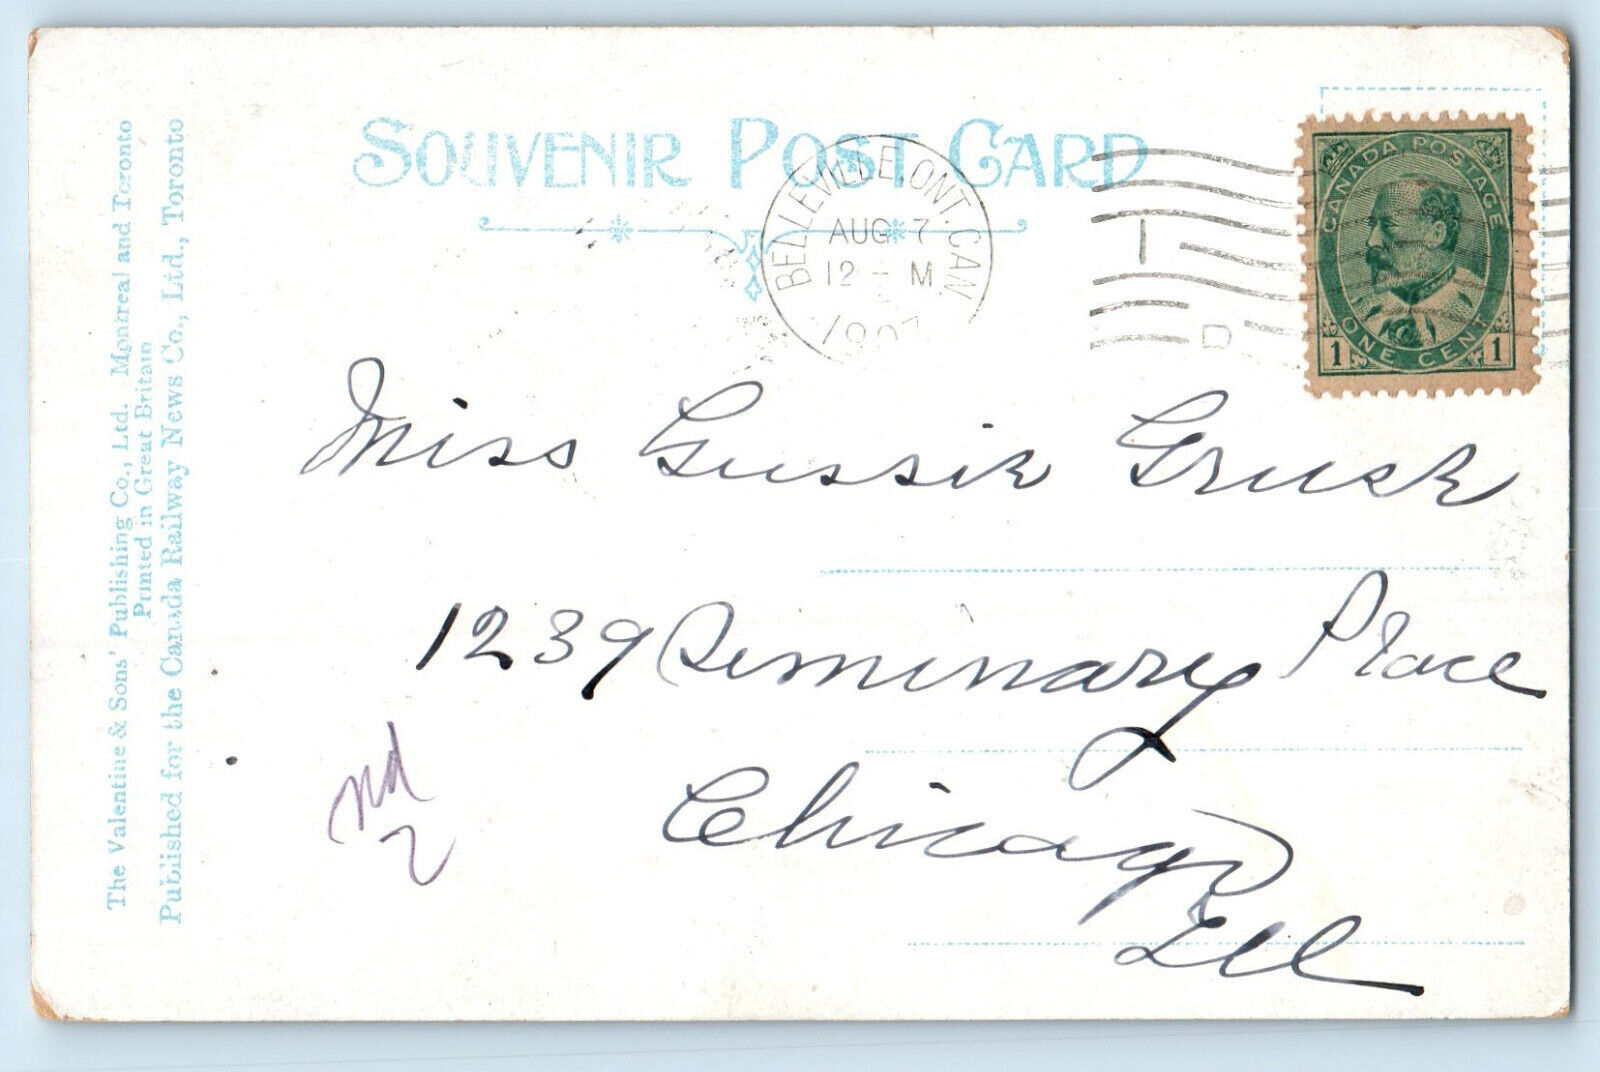 SOUVENIR POST CARD
BELLEVILLE, ONT. CAN.
AUG 7
12 - M
1907
CANADA POSTAGE
ONE CENT
1 1
Miss Gussie Gruse
1239 Seminary Place
Chicago
Ill
nd
2
The Valentine & Sons' Publishing Co., Ltd. Montreal and Toronto
Printed in Great Britain
Published for the Canada Railway News Co., Ltd., Toronto